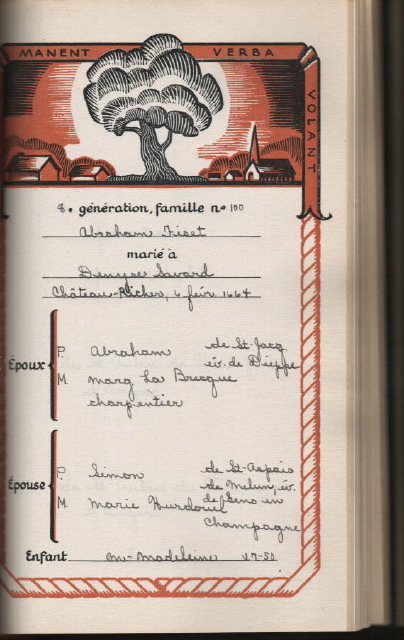 MANENT VERBA VOLANT
8e génération, famille no 100
Abraham Fiset
marié à
Denyse Savard
Château-Richer, 6 févr 1664
Époux
P. Abraham de St-Jacq
év. de Dieppe
M marg La Brecque
charpentier
Épouse
P. Simon de St-Aspais
de Melun, év.
M. Marie Hurdouil de Sens en
Champagne
Enfant m-madeleine